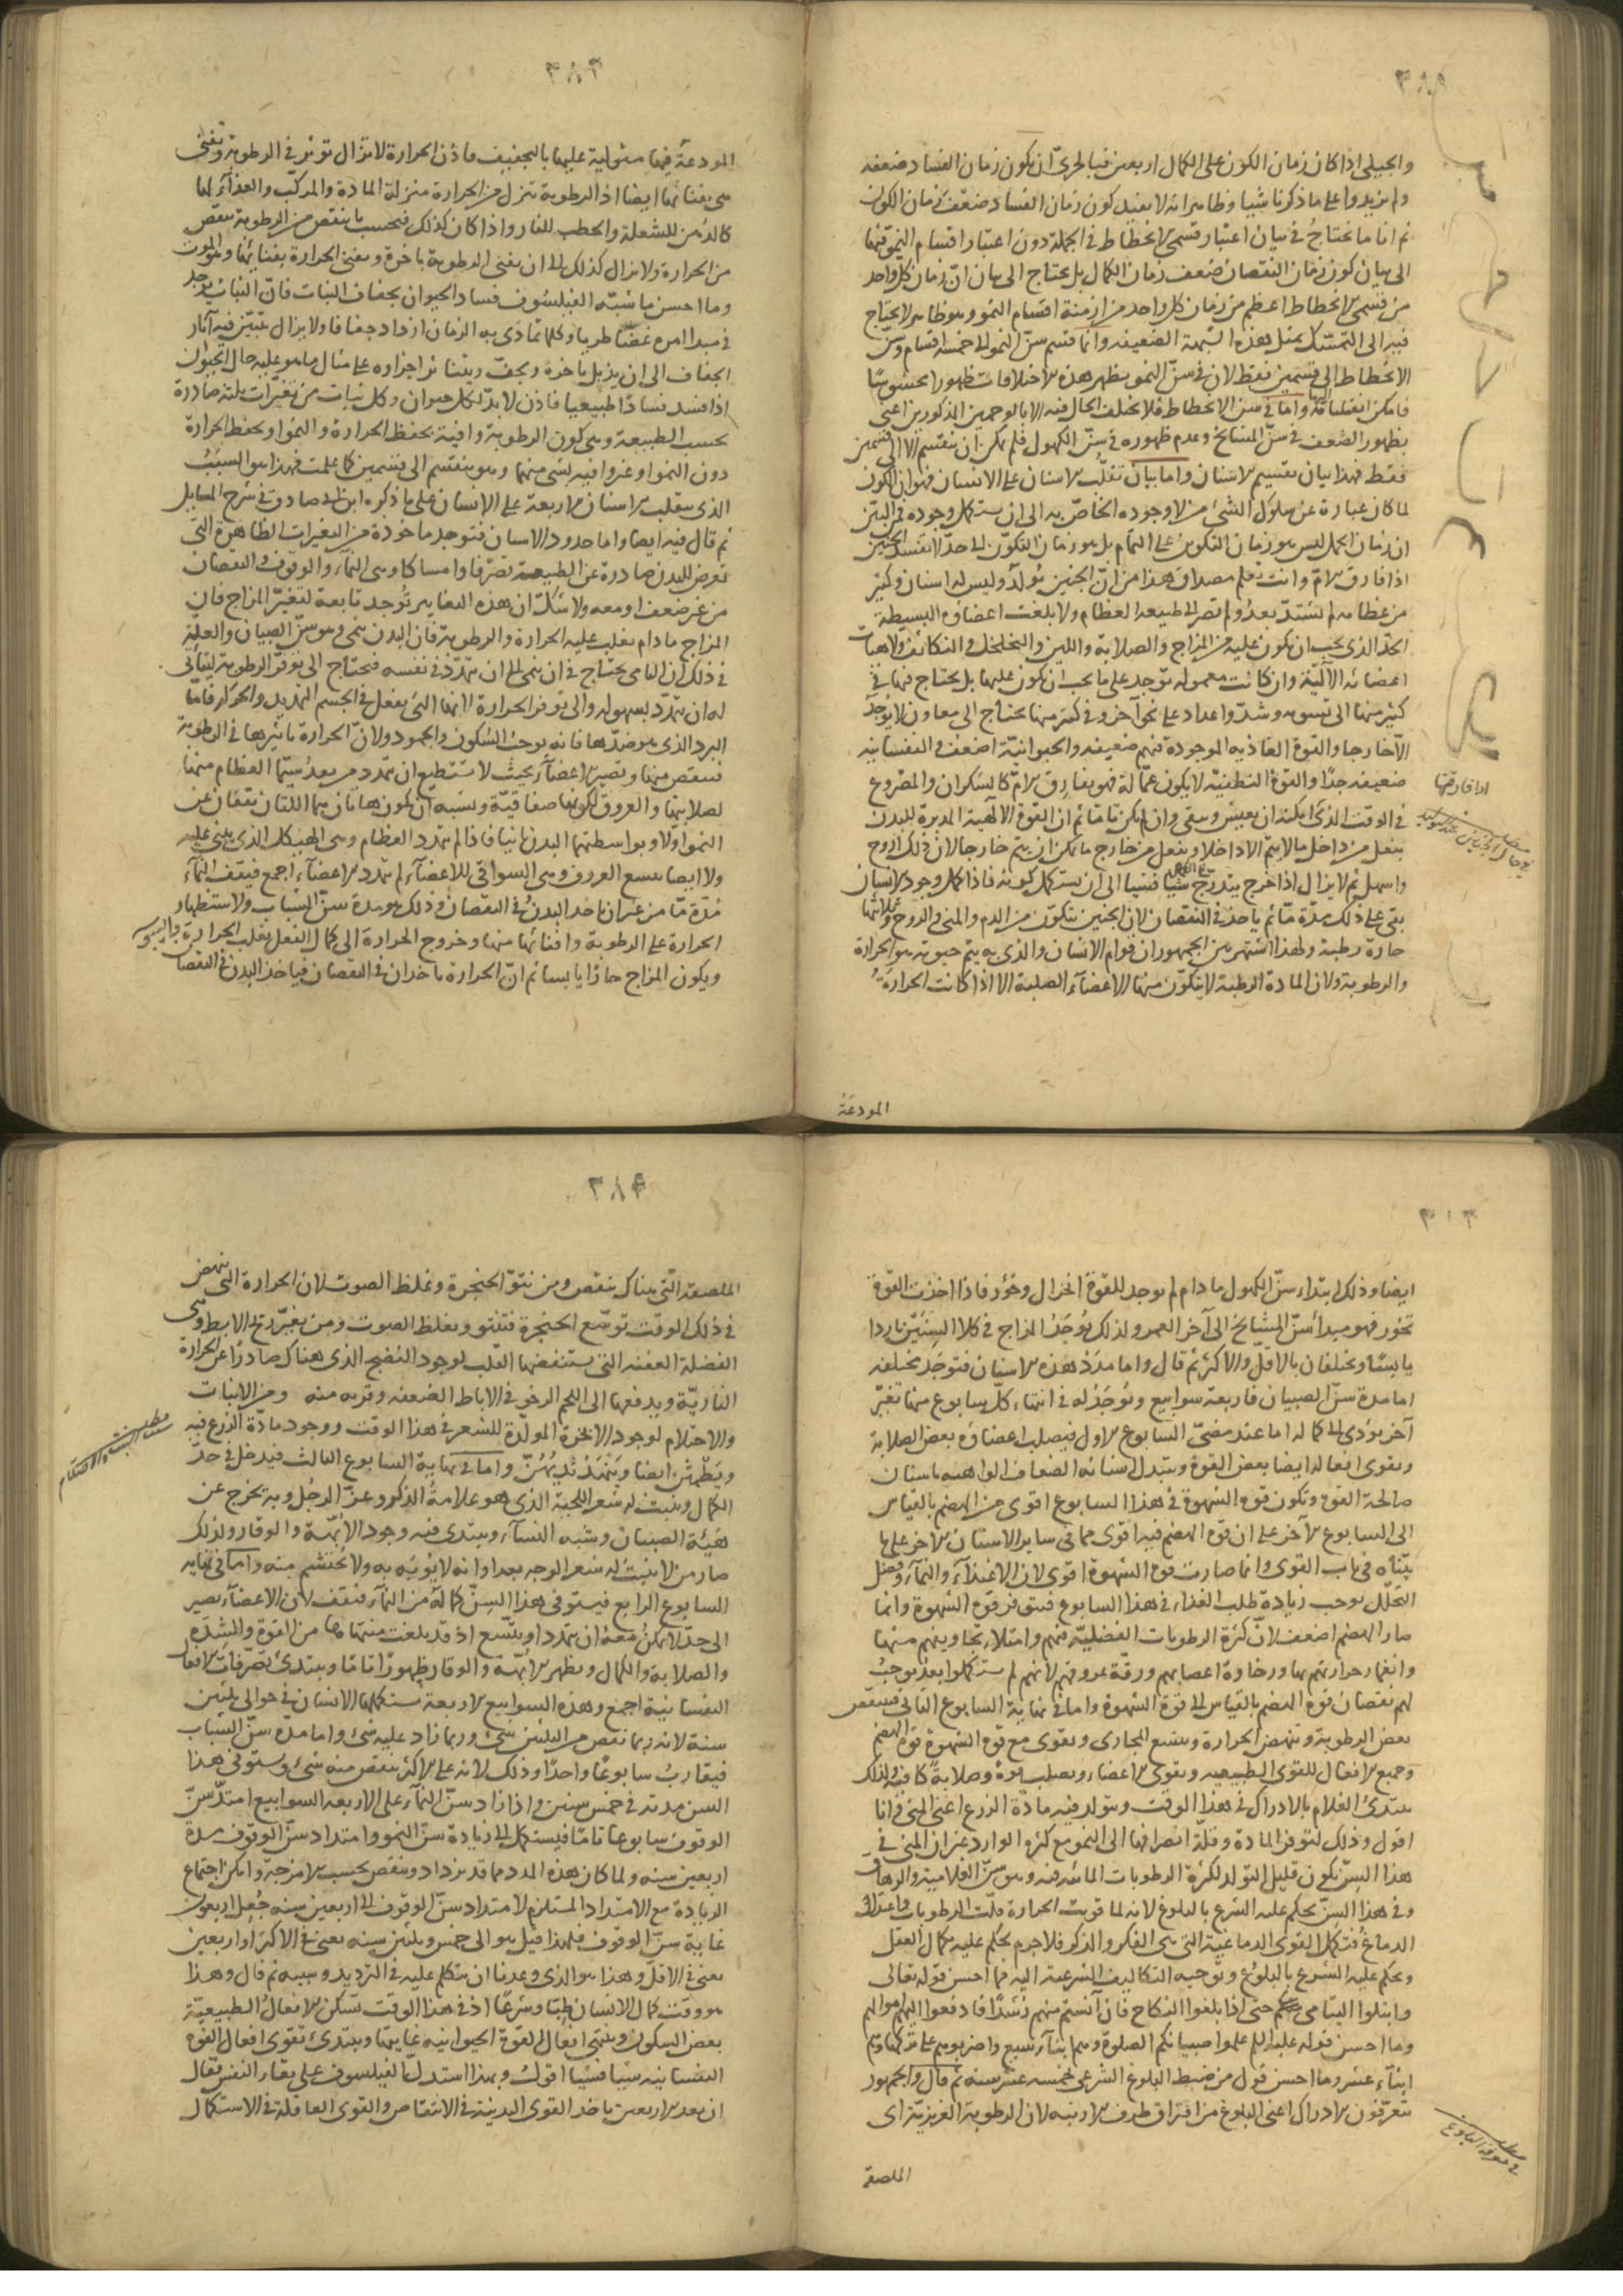 والجبلى اذا كان زمان الكون على الكمال اربعين فبالحرىّ ان يكون زمان الفساد ضعفه
ولم يزيدوا على ما ذكرنا شيا وظاهر انه لا يفيد كون زمان الفساد ضعف زمان الكون
ثم انا ما نحتاج فى بيان اعتبار قسمى الانحطاط فى الجملة دون اعتبار اقسام النموّ فيها
الى بيان كون زمان النقصان ضعف زمان الكمال بل يحتاج الى بيان انّ زمان كل واحد
من قسمى الانحطاط اعظم من زمان كل واحد من ازمنة اقسام النمو وهو ظاهر لا يحتاج
فيه الى التمسّك بمثل هذه الشبهة الضعيفة وانما قسم سنّ النمو الى خمسة اقسام وسنّ
الانحطاط الى قسمين فقط لان فى سنّ النمو يظهر هذه الاختلافات ظهورا محسوسًا
فامكن انقسامه اليها واما فى سن الانحطاط فلا يختلف الحال فيه الا بالوجهين المذكورين اعنى
بظهور الضعف فى سنّ المشايخ وعدم ظهوره فى سنّ الكهول فلم يمكن ان ينقسم الا الى قسمين
فقط فهذا بيان تقسيم الاسنان واما بيان تقلّب الاسنان على الانسان فهو ان الكون
لما كان عبارة عن سلوك الشئ من لا وجوده الخاصّ به الى ان يستكمل وجوده فمن البيّن
ان زمان الحمل ليس هو زمان التكون على التمام بل هو زمان التكوّن الى حدّ لا تفسد الجنين
اذا فارق الامّ وانت تعلم مصداق هذا من انّ الجنين يُولد وليس له اسنان وكثير
من عظامه لم تشتدّ بعدُ ولم تصر الى طبيعة العظام ولا بلغت اعضاؤه البسيطة
الحدّ الذى يجب ان يكون عليه من المزاج والصلابة واللين والتخلخل والتكاثف ولا هيات
اعضائه الآليّة وان كانت معموله توجد على ما يجب ان يكون عليها بل يحتاج فيها فى
كثير منها الى تسويه وشدّ واعداد على نحو آخر وفى كثير منها يحتاج الى معاون لا يوجد
الّا خارجا والقوة الغاذيه الموجودة فيهم ضعيفه والحيوانيّة اضعف والنفسانيه
ضعيفه جدّا والقوة النطقيّه لا يكون عمّالة فهو يفارق الامّ كالسكران والمصروع
فى الوقت الذى امكنه ان يعيش ويبقى وان لم يكن تامّا ثم ان القوة الآلهيّة المدبرة للبدن
يفعل من داخل ما لا يتم الا داخلا ويفعل من خارج ما يمكن ان يتم خارجا لان ذلك اروح
واسهل ثم لا يزال اذا خرج يتدرّج شيا فشيا الى ان يستكمل كونه فاذا كمل وجود الانسان
بقى على ذلك مدّة مّا ثم ياخذ فى النقصان لان الجنين يتكوّن من الدم والمنى والروح وثلاثتها
حارة رطبة ولهذا اشتهر بين الجمهور ان قوام الانسان والذى به يتم حيوته هو الحرارة
والرطوبة ولان المادة الرطبة لا يتكوّن منها الاعضآء الصلبة الا اذا كانت الحرارةُ
المودعَة
اذا فارقتها
المودعَة فيها مستولية عليها بالتجفيف فاذن الحرارة لا تزال توثر فى الرطوبة وتفنى
هى بفنائها ايضا اذ الرطوبة تنزل من الحرارة منزلة المادة والمركّب والغذآء لها
كالدُهن للشعلة والحطب للنار واذا كان كذلك فبحسب ما ينقص من الرطوبة ينقص
من الحرارة ولا يزال كذلك الى ان يفنى الرطوبة باخرة ويفنى الحرارة بفنائها والموت
وما احسن ما شبّه الفيلسوف فساد الحيوان بجفاف النبات فانّ النبات يوجد
فى مبدا امره غضّا طريا وكلما تمادى به الزمان ازداد جفافا ولا يزال يتبيّن فيه آثار
الجفاف الى ان يذبل باخرة ويجفّ ويتناثر اجزاوه على مثال ما هو عليه حال الحيوان
اذا فسد فسادًا طبيعيا فاذن لا بدّ لكل حيوان وكل نبات من تغيّرات ثلثة صادرة
بحسب الطبيعة وهى كون الرطوبة وافية بحفظ الحرارة والنمو او بحفظ الحرارة
دون النمو او غير وافيه بشى منهما وهو ينقسم الى قسمين كما علمت فهذا هو السبَبُ
الذى يتقلب الاسنان الاربعة على الانسان على ما ذكره ابن ابى صادق فى شرح المسايل
ثم قال فيه ايضا واما حدود الاسنان فتوجد ماخوذة من التغيرات الظاهرة التى
تعرض للبدن صادرة عن الطبيعة تصرّفا وامساكا وهى النمآء والوقوف والنقصان
من غير ضعف او معه ولا شكّ ان هذه التغايير تُوجد تابعة لتغيّر المزاج فان
المزاج ما دام يغلب عليه الحرارة والرطوبة فان البدن ينمى وهو سنّ الصبيان والعلّة
فى ذلك ان النامى يحتاج فى ان ينمى الى ان يتمدّد فى نفسه فيحتاج الى توفر الرطوبة ليتأتى
له ان يتمدّد بسهوله والى توفر الحرارة لانها التى يفعل فى الجسم التمديد والحركة فامّا
البرد الذى هو ضدّها فانه يوجب السُكون والجمود ولانّ الحرارة تاثيرها فى الرطوبة
فينقص منها وتصير الاعضآء بحيث لا تستطيع ان يتمدد من بعد سيّما العظام منها
لصلابتها والعروق لكونها صفاقيّة ويشبه ان يكون هاتان هما اللتان تقفان عن
النمو اولا وبواسطتهما البدن ثانيا فاذا لم يتمدد العظام وهى الهيكل الذى يبنى عليه
ولا ايضا يتسع العروق وهى السواقى للاعضآء لم يتمدد الاعضآء اجمع فيقف النمآء
مُدّة مّا من غير ان ياخذ البدنُ فى النقصان وذلك هو مدة سنّ الشباب ولاستظهار
الحرارة على الرطوبة وافنائها منها وخروج الحرارة الى كمال الفعل يغلب الحرارة واليبوسه
ويكون المزاج حارّا يابسا ثم انّ الحرارة ياخذ ان فى النقصان فياخذ البدن فى النقصان
ايضا وذلك ابتداء سنّ الكهول ما دام لم يوجد للقوة انخزال وخوُر فاذا اخذت القوة
تخور فهو مبدأ سنّ المشايخ الى آخر العمر ولذلك يُوجَدُ المزاج فى كلا السِنّيْن باردا
يابسًا ويختلفان بالاقلّ والاكثر ثم قال واما مدَدُ هذه الاسنان فتوجَد مختلفه
اما مدة سنّ الصبيان فاربعة سوابيع ويُوجَدُ له فى انتهاء كلّ سابوع منها تغيّر
آخر يؤدى الى كماله اما عند مضىّ السابوع الاول فيصلب اعضاؤه بعض الصلابة
ويقوى افعاله ايضا بعض القوة ويتبدل اسنانه الضعاف الواهيه باسنان
صالحة القوة وتكون قوة الشهوة فى هذا السابوع اقوى من الهضم بالقياس
الى السابوع الآخر على ان قوة الهضم فيه اقوى مما فى ساير الاسنان الآخر على ما
بيّناه فى باب القوى وانما صارت قوة الشهوة اقوى لان الاغتذآء والنمآء وفضل
التحلّل يوجب زيادة طلب الغذاء فى هذا السابوع فيتوفر قوة الشهوة وانما
صار الهضم اضعف لانّ كثرة الرطوبات الفضليّة فيهم وامتلاء تجاويفهم منها
وانغمار حرارتهم بها ورخاوة اعصابهم ورقّة عروقهم لانهم لم يستكملوا بعدُ يوجبُ
لهم نقصان قوة الهضم بالقياس الى قوة الشهوة واما فى نهاية السابوع الثانى فينتقص
بعض الرطوبة وتنهض الحرارة ويتسع المجارى ويقوى مع قوة الشهوة قوة الهضم
وجميع الافعال للقوى الطبيعيه ويقوى الاعضاء ويصلب قوة وصلابة كافية ولذلك
يبتدى الغلام بالادراك فى هذا الوقت ويتولد فيه مادّة الزرع اعنى المنى فانا
اقول وذلك لتوفر المادة وقلّة انصرافها الى النمو مع كثرة الوارد غير ان المنى فى
هذا السنّ يكون قليل التولد لكثرة الرطوبات المائية فيه وهو سنّ الغلامية والرهاق
وفى هذا السنّ يحكم عليه الشرع بالبلوغ لانه لما قويت الحرارة قلّت الرطوبات واعتدل
الدماغ فتكمل القوى الدماغية التى هى الفكر والذكر فلا جرم يحكم عليه بكمال العقل
ويحكم عليه الشرع بالبلوغ وتوجيه التكاليف الشرعية اليه فما احسن قوله تعالى
وابتلوا اليتامى حتى اذا بلغوا النكاح فان آنستم منهم رُشدًا فادفعوا اليهم اموالهم
وما احسن قوله عليه السلم علموا صبيانكم الصلوة وهم ابنآء سبع واضربوهم على تركها وهم
ابنآء عشر وما احسن قول من ضبط البلوغ الشرعى بخمسة عشر سنه ثم قال والجمهور
يتعرّفون الادراك اعنى البلوغ من افتراق طرف الارنبه لان الرطوبة الغريزيّة اى
الملصقة
فى معرفة البلوغ
الملصقة التى هناك ينقص ومن نتوّ الحنجرة وغلظ الصوت لان الحرارة التى ينهض
فى ذلك الوقت توسّع الحنجرة فتنتو ويغلظ الصوت ومن تغيّر ريح الابط وهى
الفضلة العفنه التى يستنفضها القلب لوجود النُضج الذى هناك صادرًا عن الحرارة
الناريّة ويدفعها الى اللحم الرخو فى الاباط الضعفه وقربه منه ومن الانبات
والاحتلام لوجود الابخرة المولّدة للشعر فى هذا الوقت ووجود مادّة الزرع فيه
ويَطْمِثْن ايضا ويَنْهَدُ ثديهُنّ واما فى نهاية السابوع الثالث فيدخل فى حدّ
الكمال وينبت له شعر اللحية الذى هو علامةُ الذكر وعزّ الرجُل وبه يخرج عن
هَيْئة الصبيان وشبه النسآء ويبتدى فيه وجود الابّهة والوقار ولذلك
صار من لا ينبت له شعر الوجه بعد اوانه لا يُوبَه به ولا يُحتشم منه واما فى نهاية
السابوع الرابع فيستوفى هذا السنّ كماله من النمآء فيقف لان الاعضآء تصير
الى حدّ لا يمكنُ معه ان يتمدد او يتّسع اذ قد بلغت منتهاها من القوة والشدة
والصلابة والكمال ويظهر الابّهة والوقار ظهورًا تامّا ويبتدئ تصرّفات الافعال
النفسانية اجمع وهذه السوابيع الاربعة يستكملها الانسان فى حوالى ثلثين
سنة لانه ربما نقص من الثلثين شئ وربما زاد عليه شئ واما مدة سنّ الشباب
فيقاربُ سابوعًا واحدًا وذلك لانه على الاكثر ينقص منه شئ ويستوفى هذا
السن مدته فى خمس سنين واذا زاد سنّ النمآء على الاربعة السوابيع امتدّ سنّ
الوقوف سابوعا تامّا فيستكمل الى زيادة سنّ النمو وامتداد سنّ الوقوف مدة
اربعين سنه ولما كان هذه المدد مما قد يزداد وينقص بحسب الامزجة وامكن اجتماع
الزيادة مع الامتداد المستلزم لامتداد سنّ الوقوف الى اربعين سنه جُعل اربعون
غاية سنّ الوقوف فلهذا قيل هو الى خمس وثلثين سنه يعنى فى الاكثر او اربعين
يعنى فى الاقلّ وهذا هو الذى وعدنا ان نتكلم عليه فى الترديد وسببه ثم قال وهذا
هو وقت كمال الانسان طبّا وشرعًا اذ فى هذا الوقت تسكن الافعالُ الطبيعيّة
بعض السكون وينتهى افعال القوة الحيوانيه غايتها ويبتدئ تقوى افعال القوة
النفسانيه شيا فشيا اقول وبهذا استدلّ الفيلسوف على بقاء النفس فقال
ان بعد الاربعين ياخذ القوى البدنية فى الانتقاص والقوى العاقلة فى الاستكمال